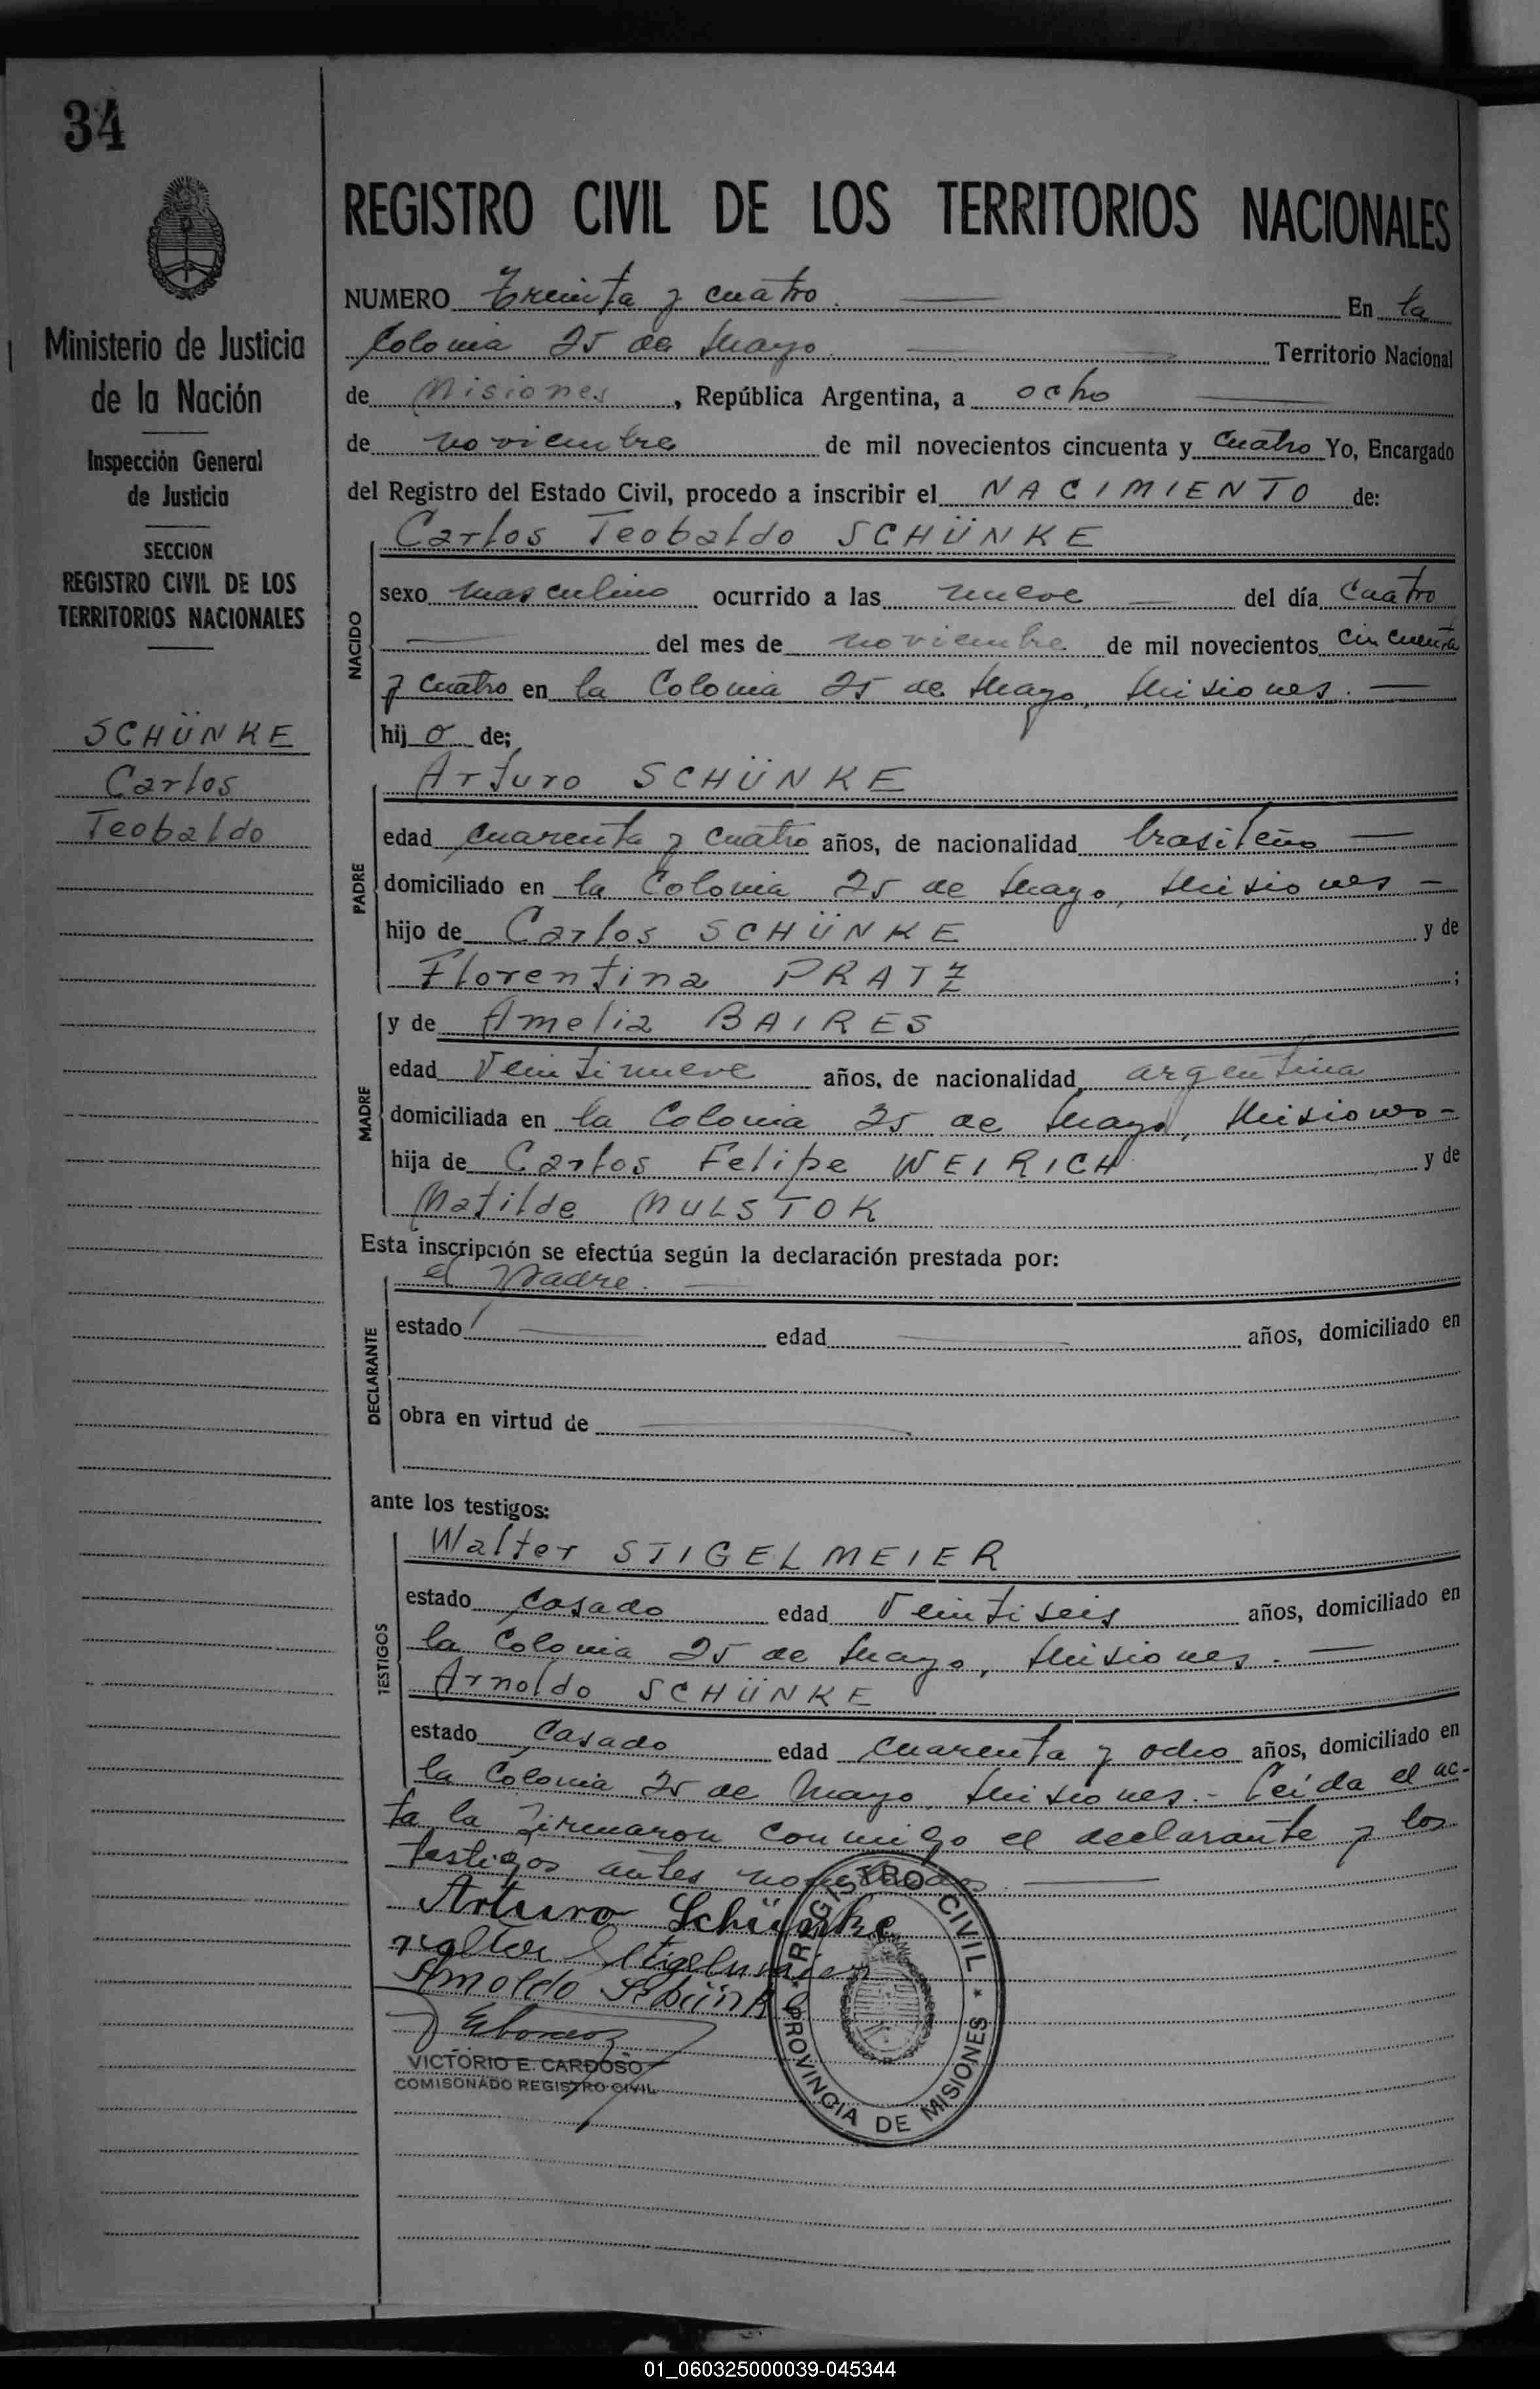 34
Ministerio de Justicia
de la Nación
Inspección General
de Justicia
SECCION
REGISTRO CIVIL DE LOS
TERRITORIOS NACIONALES
SCHÜNKE
Carlos
Teobaldo
REGISTRO CIVIL DE LOS TERRITORIOS NACIONALES
NUMERO Treinta y cuatro. En la
Colonia 25 de Mayo. Territorio Nacional
de Misiones, República Argentina, a ocho
de noviembre de mil novecientos cincuenta y cuatro Yo, Encargado
del Registro del Estado Civil, procedo a inscribir el NACIMIENTO de:
Carlos Teobaldo SCHÜNKE
NACIDO
sexo masculino ocurrido a las nueve del día cuatro
del mes de noviembre de mil novecientos cincuenta
y cuatro en la Colonia 25 de Mayo, Misiones.
hijo de;
Arturo SCHÜNKE
PADRE
edad cuarenta y cuatro años, de nacionalidad brasileño
domiciliado en la Colonia 25 de Mayo, Misiones -
hijo de Carlos SCHÜNKE y de
Florentina PRATZ ;
MADRE
y de Amelia BAIRES
edad Veintinueve años, de nacionalidad argentina
domiciliada en la Colonia 25 de Mayo, Misiones -
hija de Carlos Felipe WEIRICH y de
Matilde MULSTOK
Esta inscripción se efectúa según la declaración prestada por:
el Padre.
DECLARANTE
estado edad años, domiciliado en
obra en virtud de
ante los testigos:
TESTIGOS
Walter STIGELMEIER
estado Casado edad Veintiseis años, domiciliado en
la Colonia 25 de Mayo, Misiones.
Arnoldo SCHÜNKE
estado Casado edad cuarenta y ocho años, domiciliado en
la Colonia 25 de Mayo, Misiones.- Leida el ac-
ta la firmaron conmigo el declarante y los
testigos antes nombrados.
Arturo Schünke
Walter Stigelmeier
Arnoldo Schünke
VICTORIO E. CARDOSO
COMISONADO REGISTRO CIVIL
REGISTRO CIVIL * PROVINCIA DE MISIONES *
01_060325000039-045344